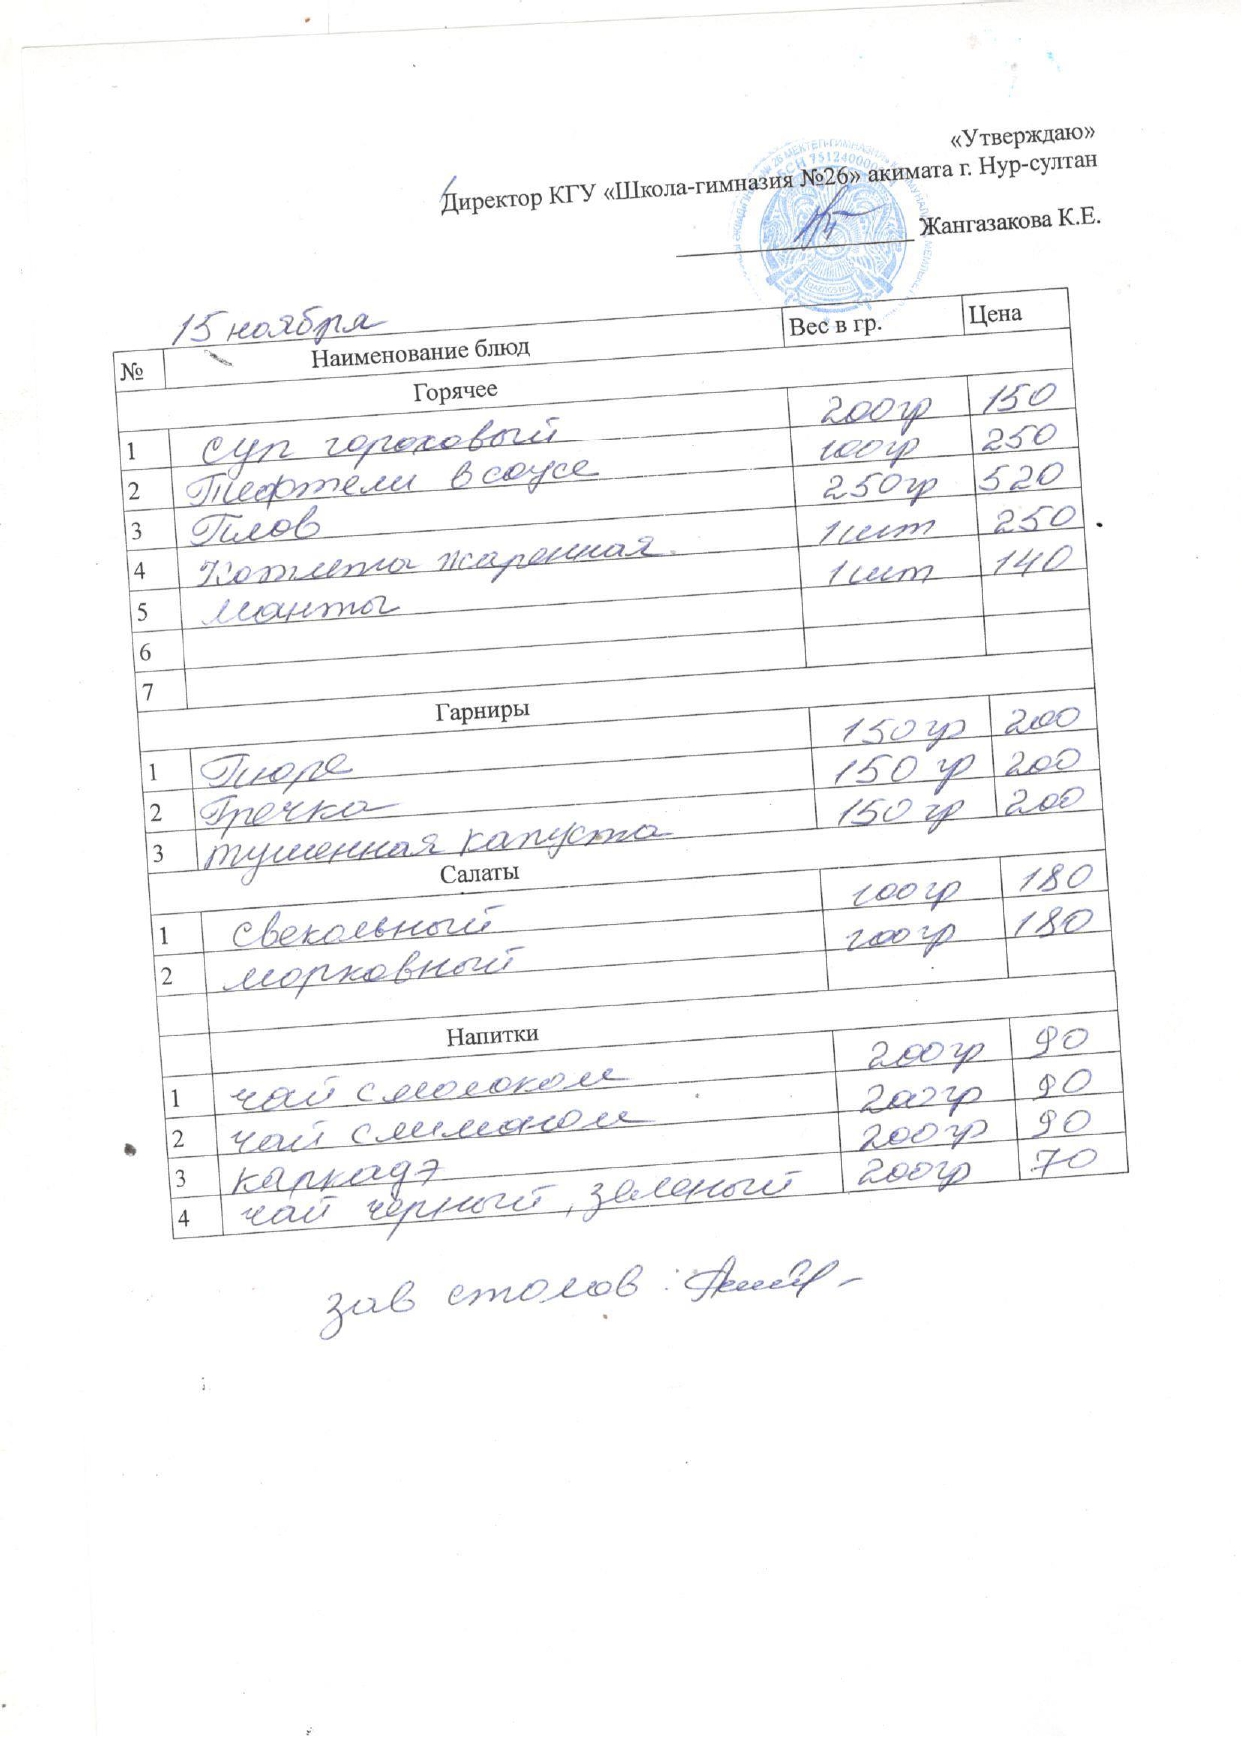 «Утверждаю»
Директор КГУ «Школа-гимназия №26» акимата г. Нур-султан
Жангазакова К.Е.
15 ноября
№ Наименование блюд Вес в гр. Цена
Горячее
1 суп гороховый 200гр 150
2 Тефтели в соусе 100гр 250
3 Плов 250гр 520
4 Котлета жаренная 1шт 250
5 манты 1шт 140
6
7
Гарниры
1 Пюре 150гр 200
2 Гречка 150гр 200
3 тушенная капуста 150гр 200
Салаты
1 свекольный 100гр 180
2 морковный 100гр 180
Напитки
1 чай с молоком 200гр 90
2 чай с лиманом 200гр 90
3 каркадэ 200гр 90
4 чай черный, зеленый 200гр 70
зав столов: